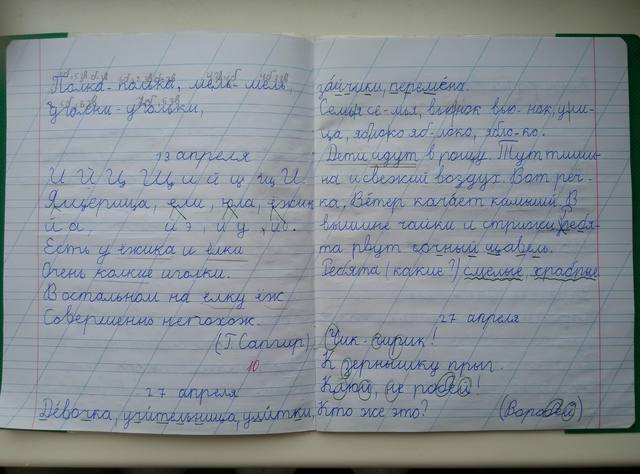 Полка - полька, мель - мель,
уголки - угольки,
13 апреля
И Й Ц Щ и й ц щ И
Ящерица, ели, юла, ежик
й а, й э, й у, йо.
Есть у ёжика и ёлки
Очень колкие иголки.
В остальном на ёлку ёж
Совершенно непохож.
(Г. Сапгир)
10
27 апреля
Девочка, учительница, улитки
зайчики, перемена.
Семья се-мья, вьюнок вью-нок, ули-
ца, яблоко яб-локо, ябло-ко.
Дети идут в рощу. Тут тиши-
на и свежий воздух. Вот реч-
ка, Ветер качает камыш. В
вышине чайки и стрижи, Ребя-
та рвут сочный щавель.
Ребята (какие?) смелые, храбрые
27 апреля
Чик - чирик!
К зернышку прыг.
Клюй, не робей!
Кто же это? (Воробей)